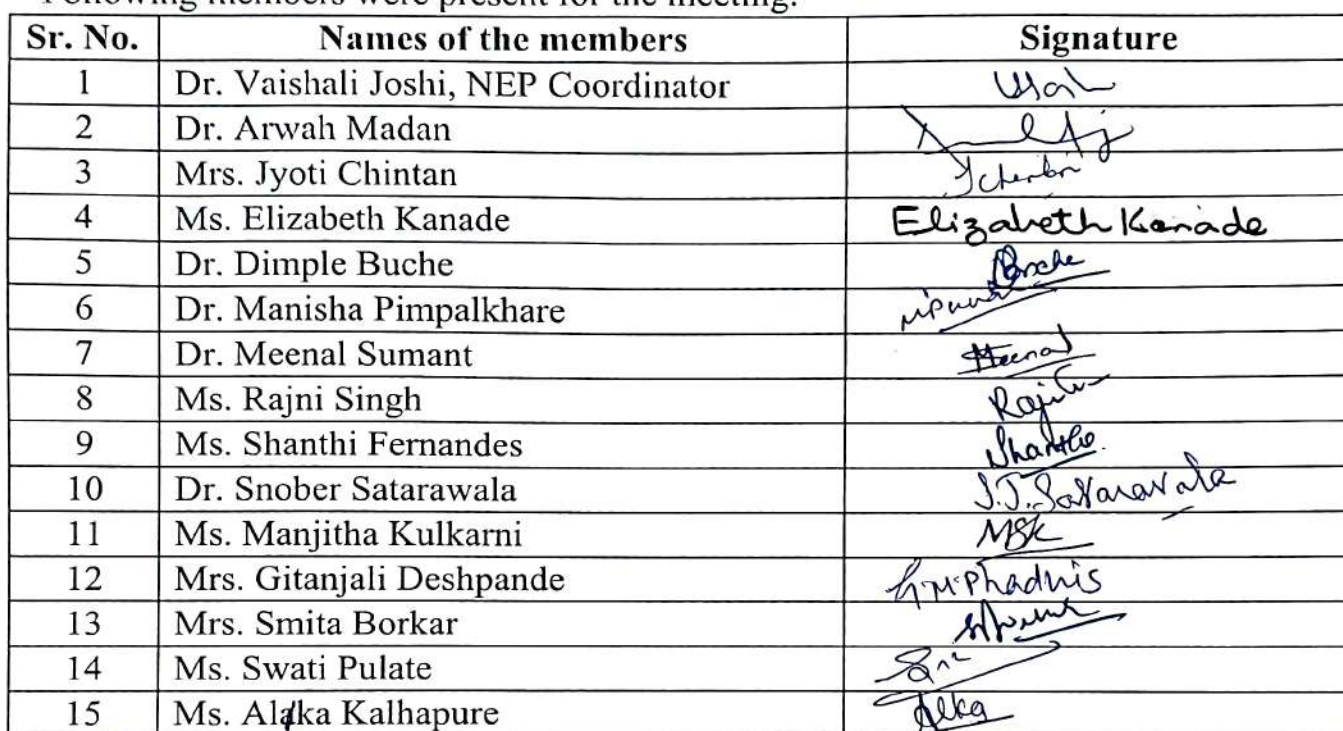 Following members were present for the meeting.
Sr. No. Names of the members Signature
1 Dr. Vaishali Joshi, NEP Coordinator
2 Dr. Arwah Madan
3 Mrs. Jyoti Chintan
4 Ms. Elizabeth Kanade Elizabeth Kanade
5 Dr. Dimple Buche
6 Dr. Manisha Pimpalkhare
7 Dr. Meenal Sumant Meenal
8 Ms. Rajni Singh
9 Ms. Shanthi Fernandes
10 Dr. Snober Satarawala S.J. Satarawala
11 Ms. Manjitha Kulkarni MSK
12 Mrs. Gitanjali Deshpande G.M.Phadnis
13 Mrs. Smita Borkar
14 Ms. Swati Pulate
15 Ms. Alaka Kalhapure Alka